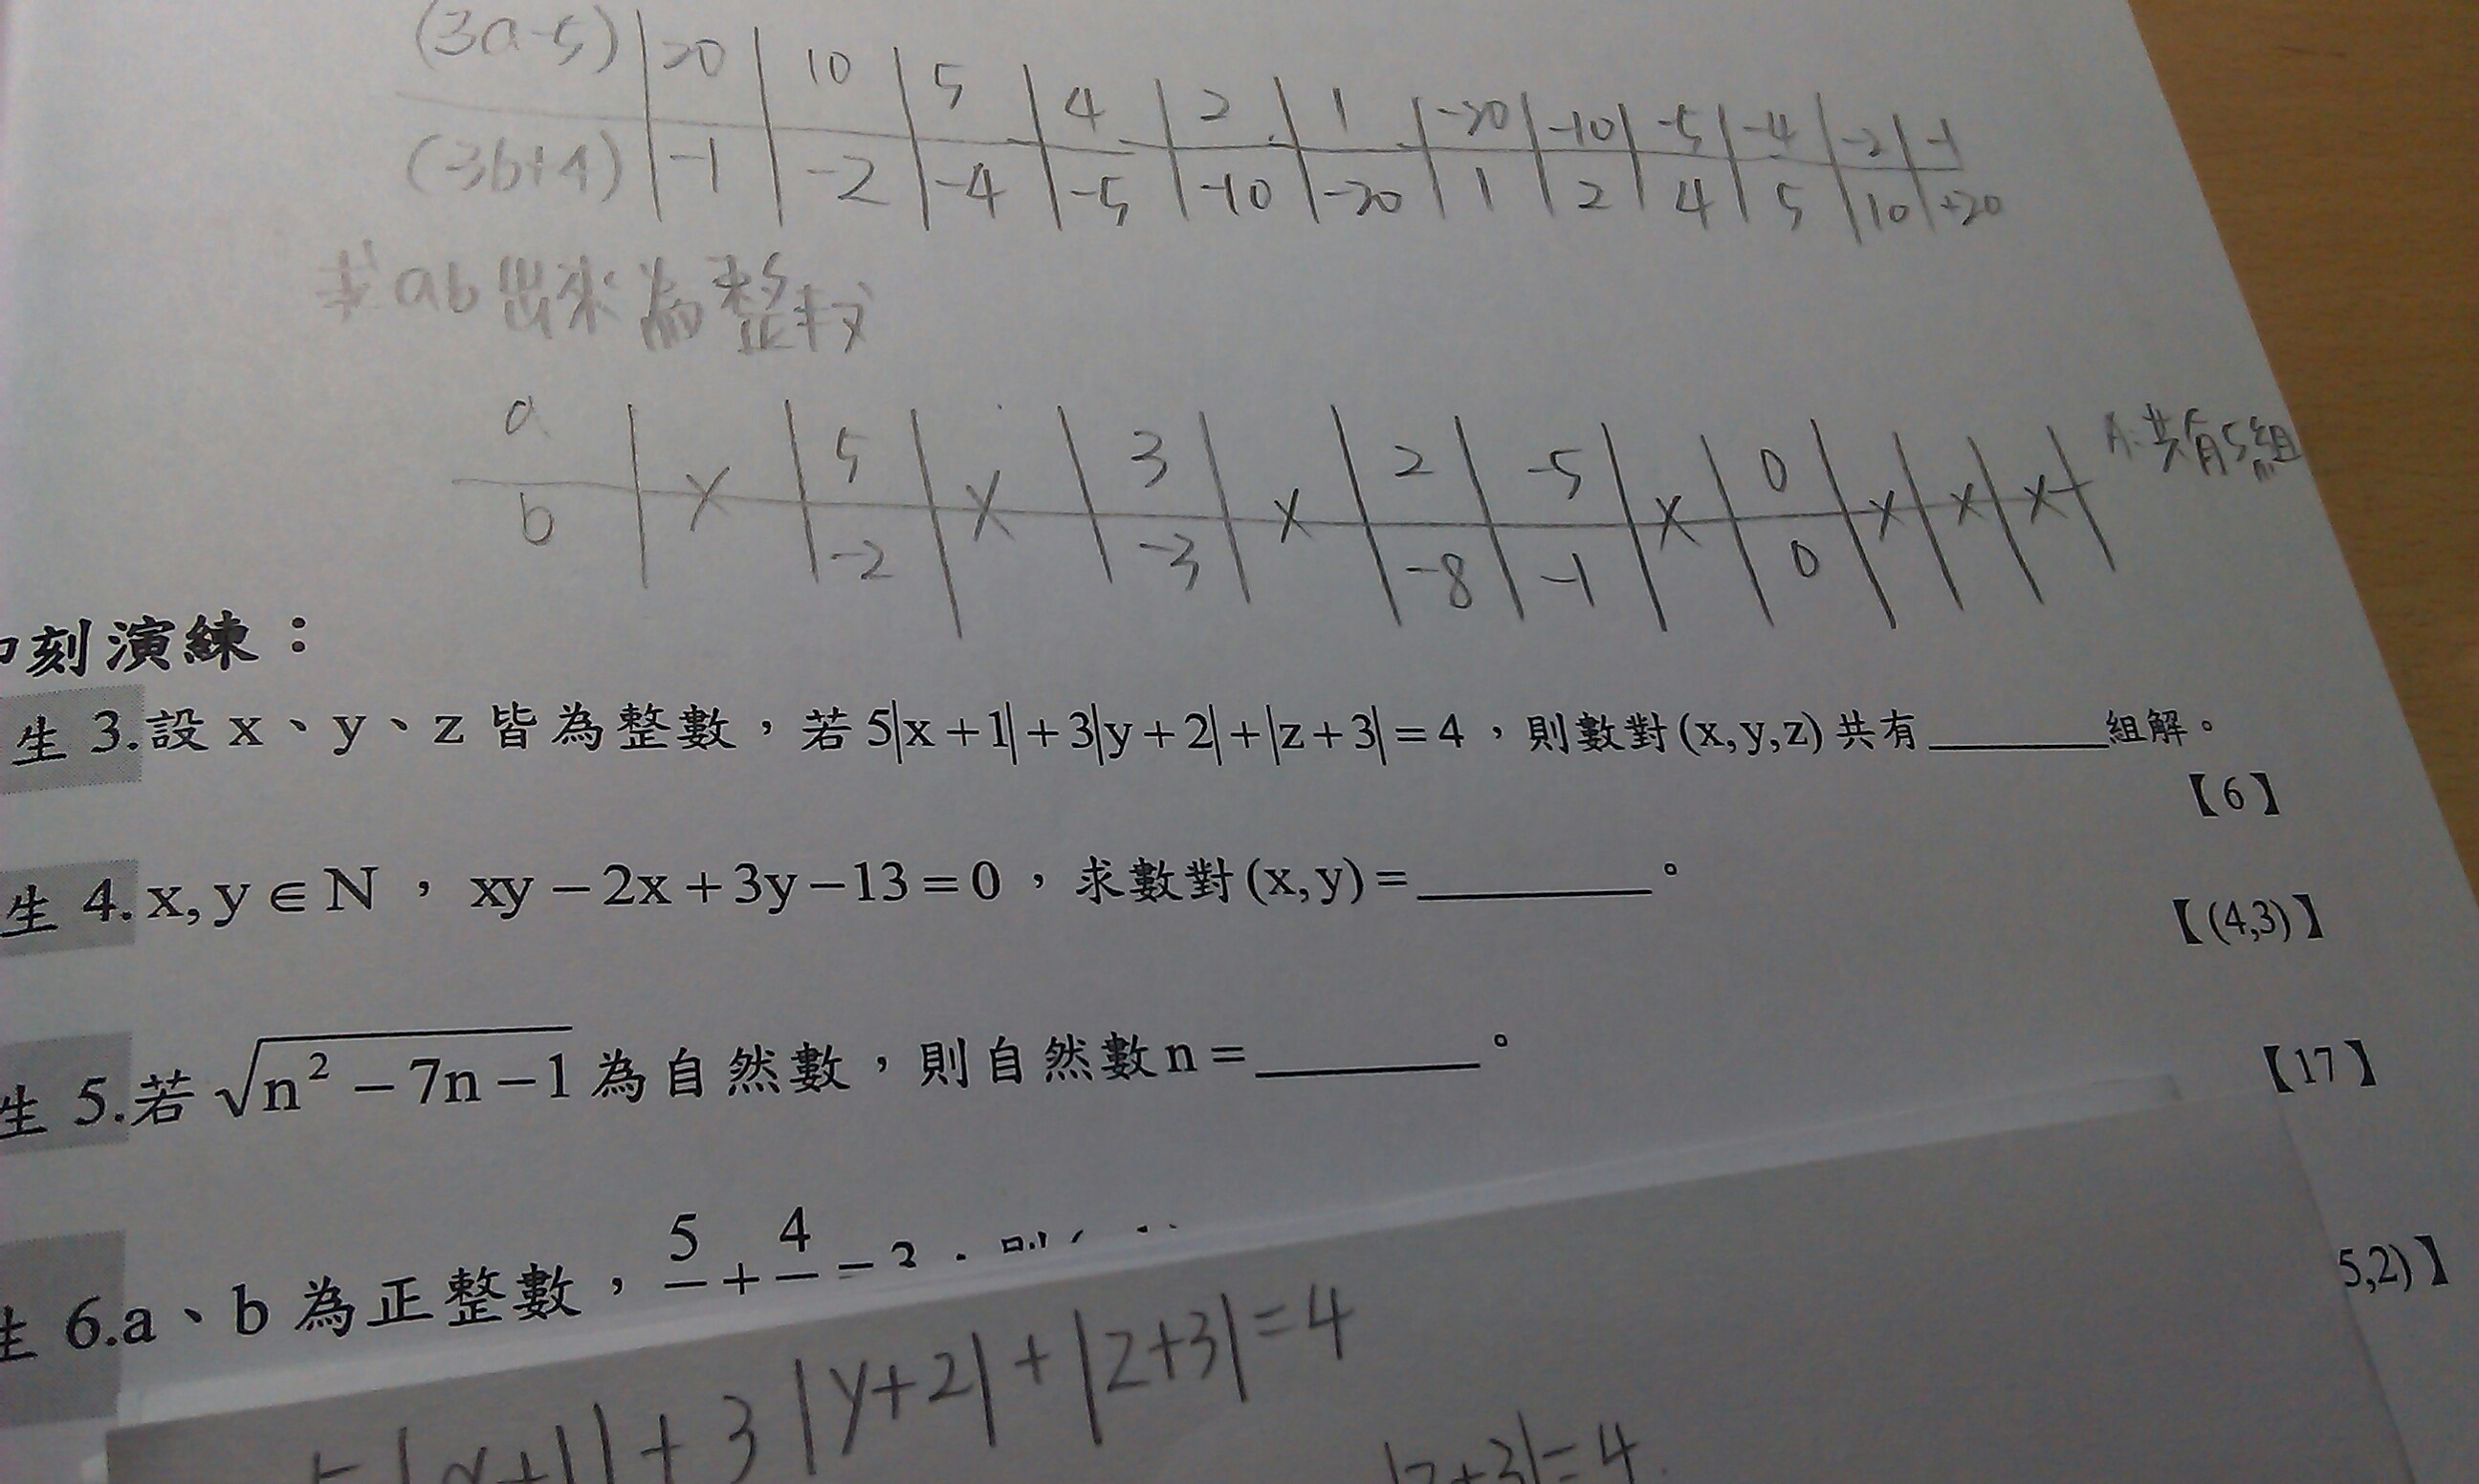 (3a-5) | 20 | 10 | 5 | 4 | 2 | 1 | -20 | -10 | -5 | -4 | -2 | -1
(3b+4) | -1 | -2 | -4 | -5 | -10 | -20 | 1 | 2 | 4 | 5 | 10 | +20
求ab出來為整数
a | x | 5 | x | 3 | x | 2 | -5 | x | 0 | x | x | x A:共有5組
b | | -2 | | -3 | | -8 | -1 | | 0
刻演練：
生 3.設 x、y、z 皆為整數，若 5|x+1|+3|y+2|+|z+3|=4，則數對(x,y,z)共有______組解。
【6】
生 4.x,y∈N，xy-2x+3y-13=0，求數對(x,y)=______。
【(4,3)】
生 5.若 √(n²-7n-1) 為自然數，則自然數n=______。
【17】
生 6.a、b 為正整數，5 + 4 = 3
5,2)】
|x+1|+3|y+2|+|z+3|=4
|z+3|=4